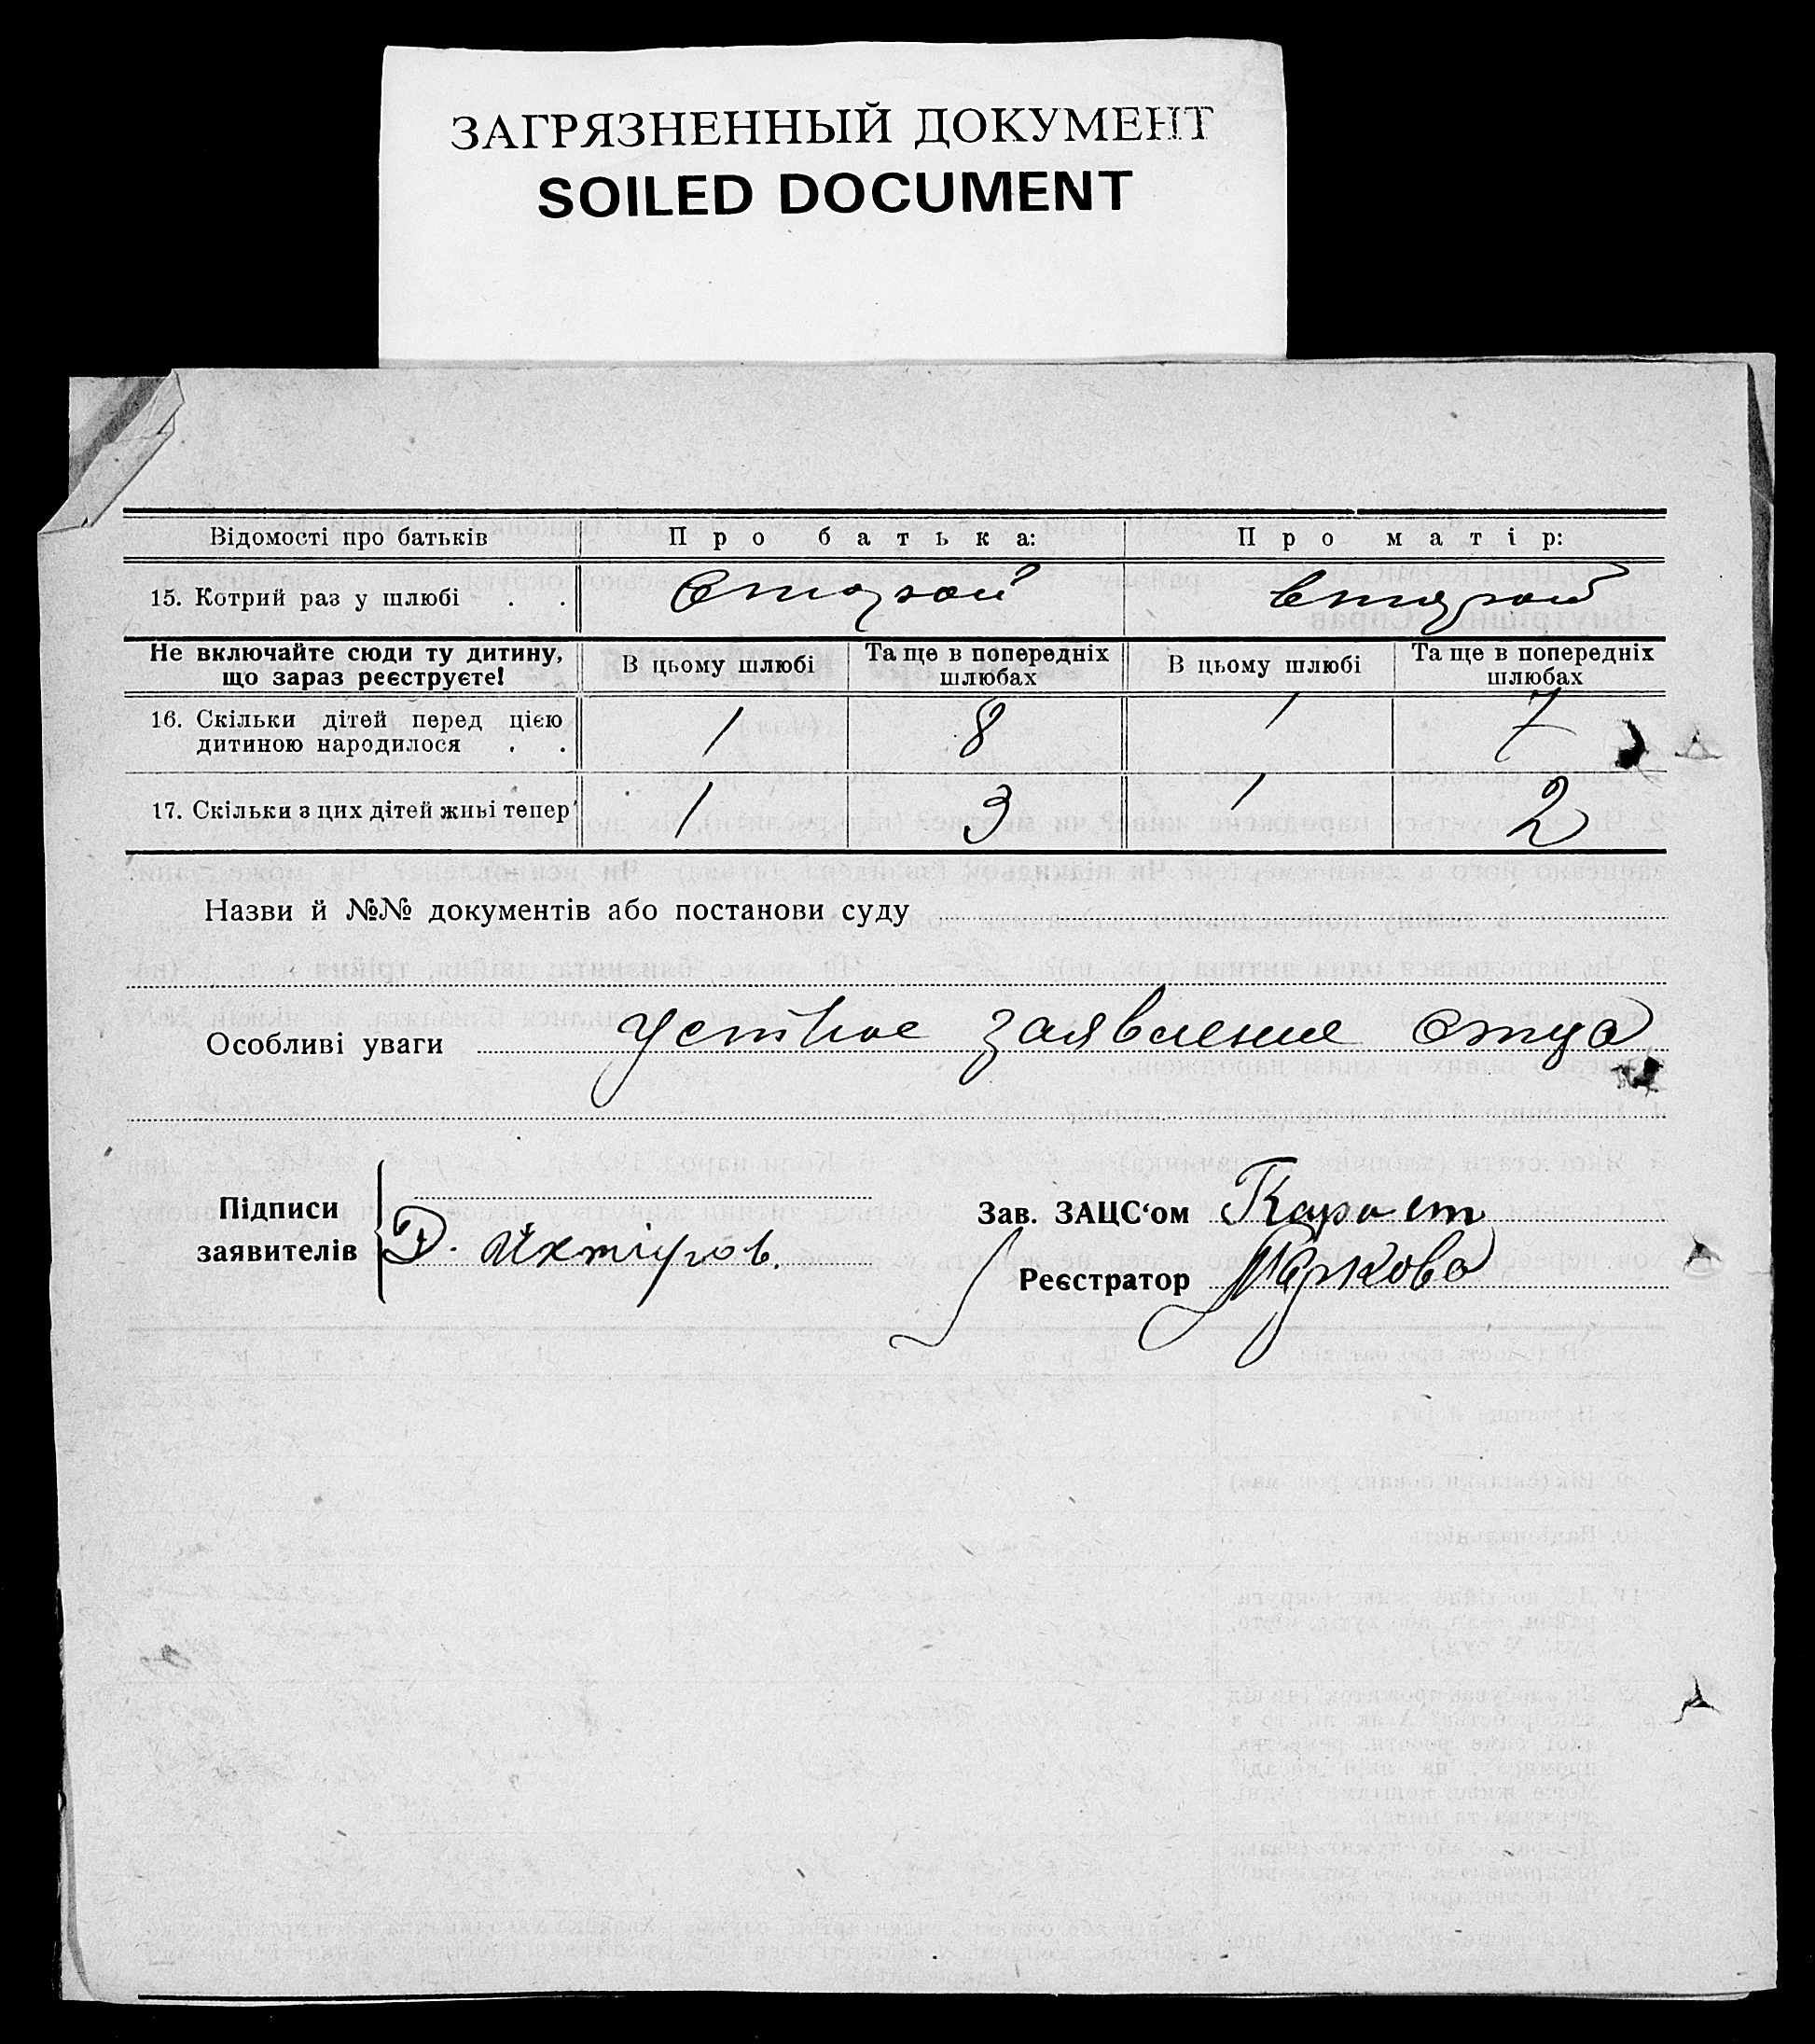 ЗАГРЯЗНЕННЫЙ ДОКУМЕНТ
SOILED DOCUMENT
Відомості про батьків Про батька: Про матір:
15. Котрий раз у шлюбі . . второй второй
Не включайте сюди ту дитину, що зараз реєструєте! В цьому шлюбі Та ще в попередніх шлюбах В цьому шлюбі Та ще в попередніх шлюбах
16. Скільки дітей перед цією дитиною народилося . . 1 8 1 7
17. Скільки з цих дітей живі тепер 1 3 1 2
Назви й №№ документів або постанови суду
Особливі уваги Устное заявление отца
Підписи заявителів Д.
Зав. ЗАЦС‘ом
Реєстратор